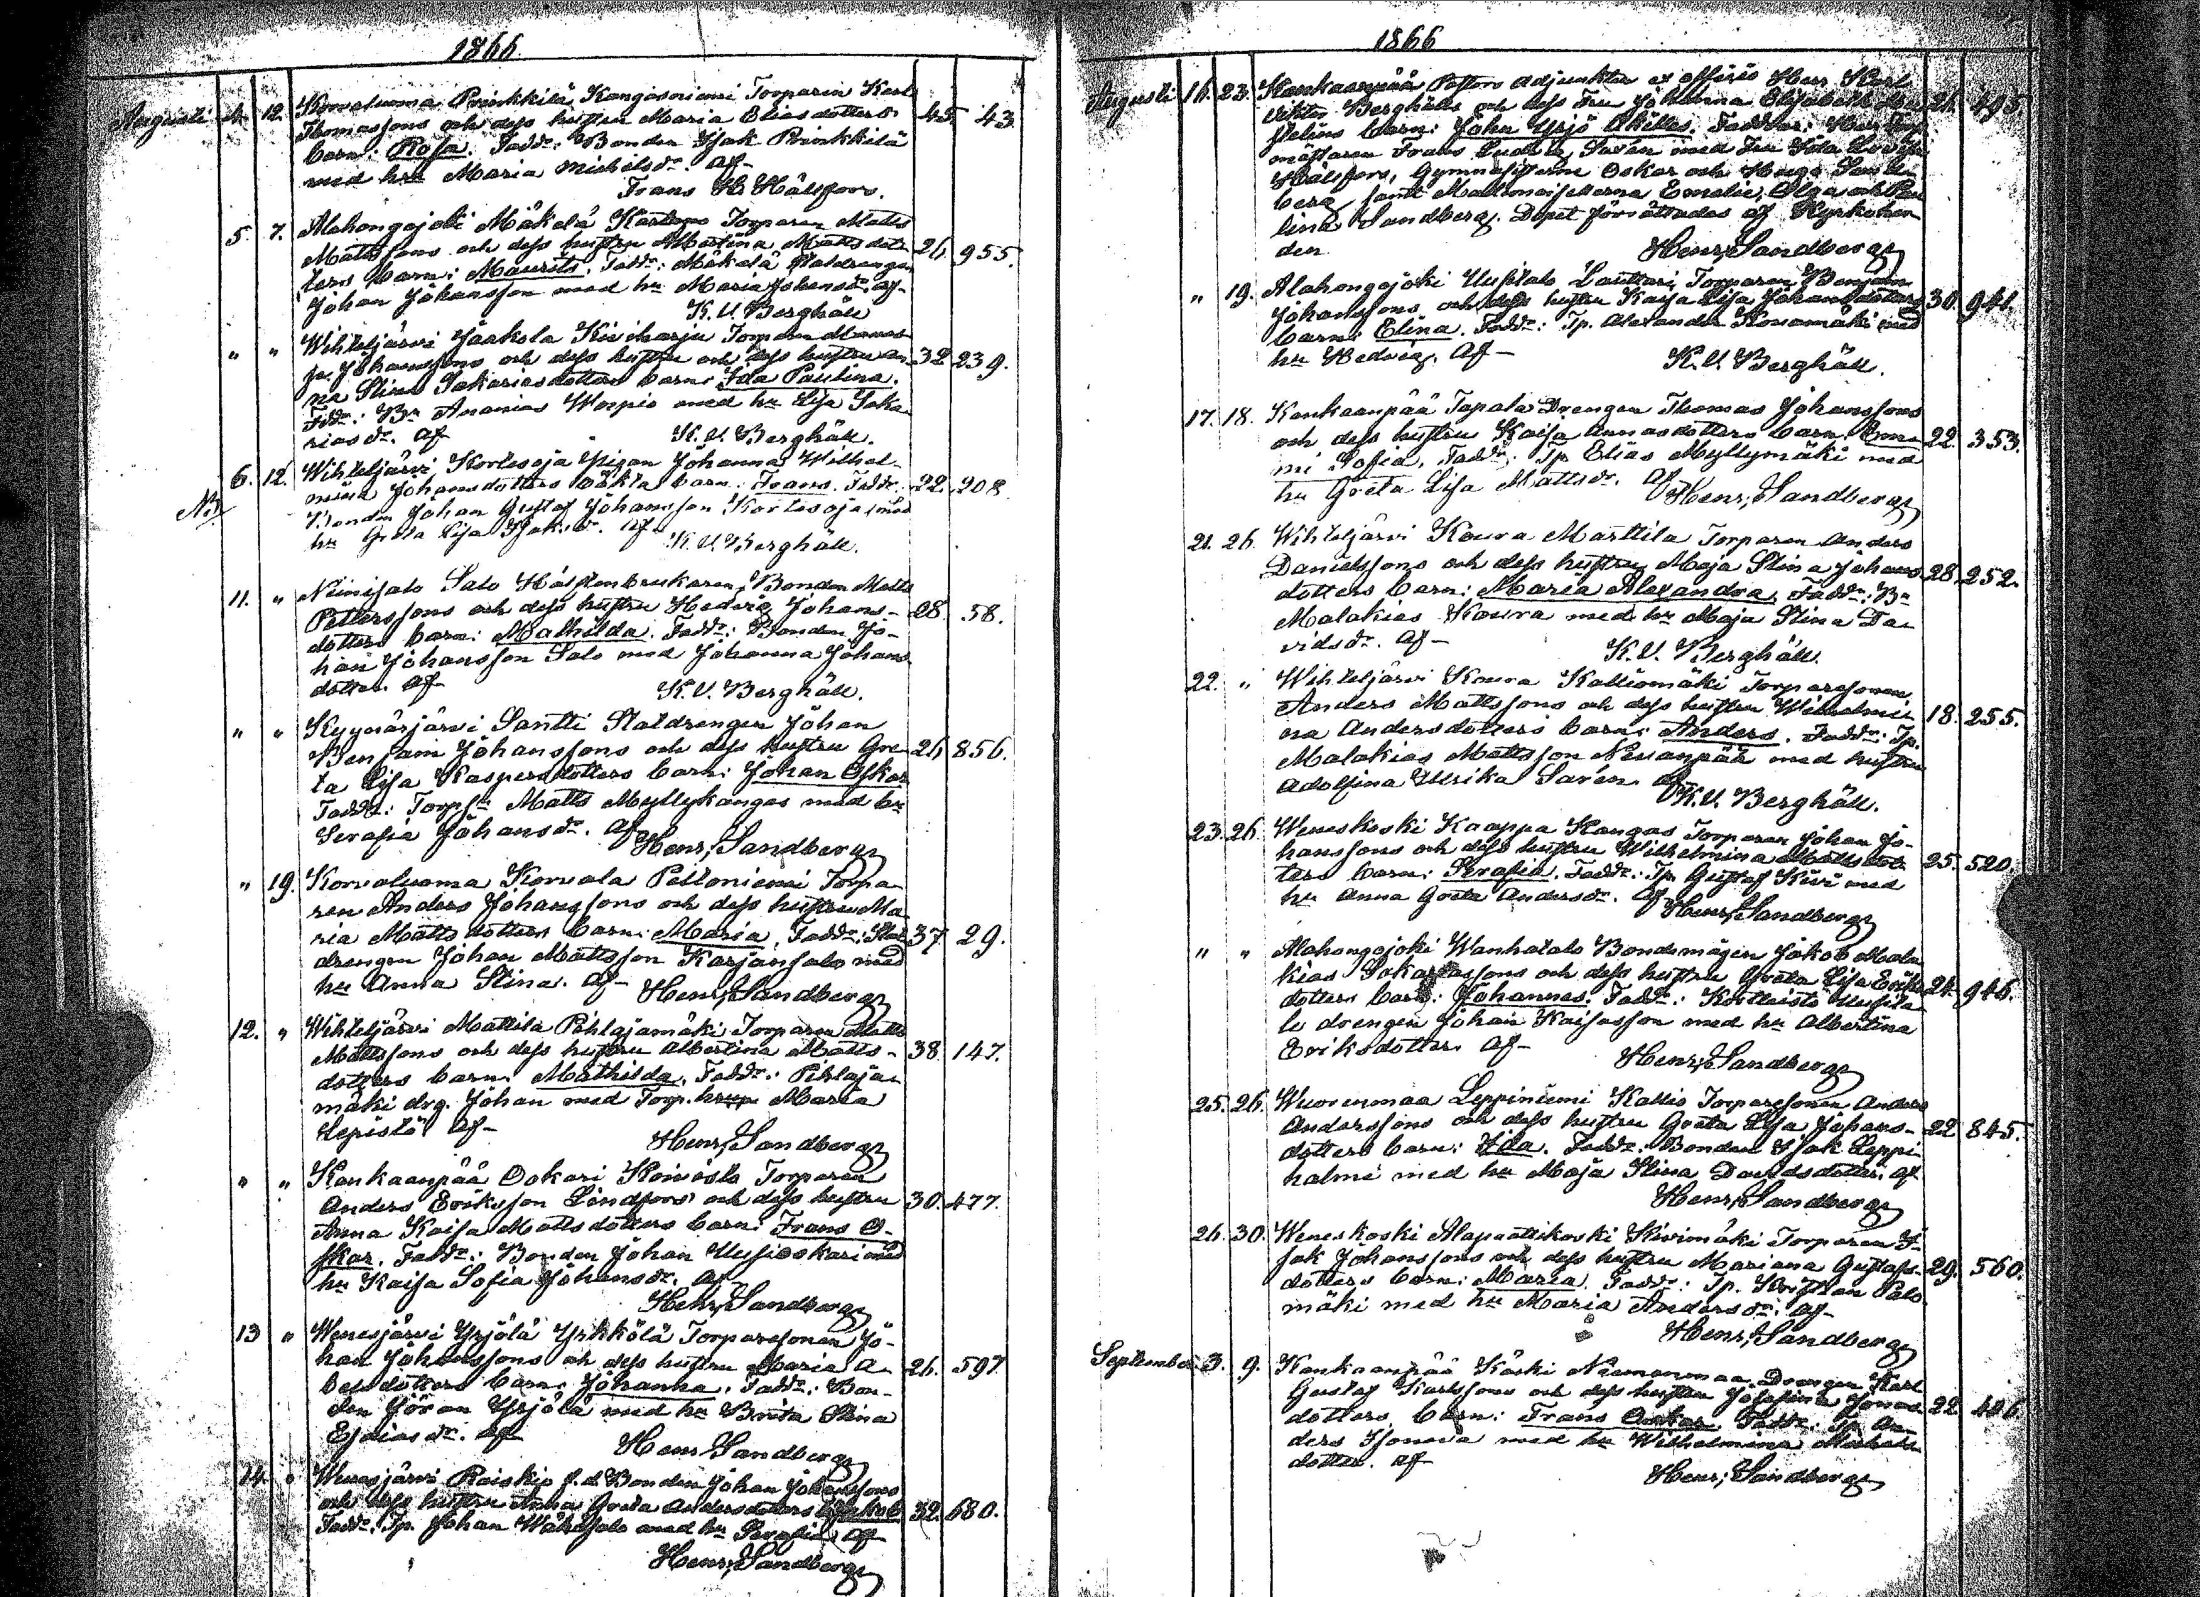 1866
Augusti 4. 12. Korvaluoma Prinkkilä Kangasniemi Torparen Karl
Thomassons och dess hustru Maria Eliasdotters 45. 43.
barn: Rosa. Fadd:r Bonden Isak Prinkkilä
med hu Maria Michelsdr. af
Frans H. Hälsfors.
5. 7. Alahongojoki Mäkelä Torparen Matts
Mattssons och dess hustru Albertina Matts dot- 26. 955.
ters barn: Maurits. Fadd:r: Mäkelä Statdrengen
Johan Johansson med hu Maria Johansdr. af
K. V. Berghäll
" " Wihteljärvi Jaakola Kiviharju Torparen
Johanssons och dess hustru och dess hustru An- 32. 239.
na Stina Sakariasdotters barn: Ida Paulina.
Fdd:r: Bn Ananias Worpio med hu Lisa Saka-
riasdr. af K. V. Berghäll.
6. 12. Wihteljärvi Kortesoja Pigan Johanna Wilhel-
mina Johansdotters oäkta barn: Frans. Fadd:r: 22. 208.
Bonden Johan Gustaf Johansson Kortesoja med
hu Greta Lisa Isaksdr. af
K. V. Berghäll.
11. " Niinisalo Salo Hälftenbrukaren, Bonden Matts
Petterssons och dess hustru Hedvig Johans- 28. 58.
dotters barn: Mathilda. Fadd:r: Bonden Jo-
han Johansson Salo med Johanna Johans-
dotter. af K. V. Berghäll.
" " Kyynärjärvi Santti Statdrengen Johan
Benjam Johanssons och dess hustru Gre- 26. 856.
ta Lisa Kaspersdotters barn: Johan Oskar
Fadd:r: Matts Myllykangas med hu
Serafia Johansdr. af
Henr: Sandberg
" 19. Korvaluoma Korvala Peltoniemi Torpa-
ren Anders Johanssons och dess hustru Ma-
ria Mattsdotters barn: Maria. Fadd:r: Stat- 37. 29.
drengen Johan Mattsson Karjansalo med
hu Anna Stina. af Henr: Sandberg
12. " Wihteljärvi Mattila Pihlajamäki Torparen Matts
Mattssons och dess hustru Albertina Matts- 38. 147.
dotters barn: Mathilda. Fadd:r: Pihlaja-
mäki drg. Johan med Torp. Maria
Lepistö af
Henr: Sandberg
" " Kankaanpää Oskari Koivisto Torparen
Anders Eriksson Lindfors' och dess hustru 30. 477.
Anna Kaisa Mattsdotters barn: Frans O-
skar. Fadd:r: Bonden Johan Uusioskari med
hu Kaisa Sofia Johansdr. af
Henr: Sandberg
13 " Wenesjärvi Yrjölä Yrkkölä Torparesonen Jo-
han Johanssons och dess hustru Maria A- 26. 597
belsdotters barn: Johanna. Fadd:r: Bon-
den Jöran Yrjölä med hu Brita Stina
Esaiasdr. af
Henr: Sandberg
14. " Wenesjärvi Raiskio f.d. Bonden Johan Johanssons
och dess hustru Anna Greta Andersdotters Jakob 32. 680.
Fadd:r: Tp. Johan med hu Serafia. af
Henr: Sandberg
1866
Augusti 16. 23. Kankaanpää Pastors Adjunkten ex officio Herr Karl
Viktor Berghälls och dess Fru Johanna Elisabeth 26. 495.
barn: Johan Yrjö Akilles. Faddrar:
Frans Ludvig Savén med Fru Ida
Hälsfors, Gymnasisterne Oskar och Hugo Sand-
berg samt Mademoisellerna Emelie, Olga och Pau-
lina Sandberg. Dopet förrättades af Kyrkoher-
den Henr: Sandberg
" 19. Alahongojoki Uusitalo Lauttari Torparen Benjam
Johanssons och dess hustru Kaisa Lisa Johansdotters 30. 941.
barn: Elina. Fadd:r: Tp. Alexander med
hu Hedvig. af K. V. Berghäll.
17. 18. Kankaanpää Tapala Drengen Thomas Johanssons
och dess hustru Kaisa Annasdotters barn: Emm- 22. 353.
mi Sofia. Fadd:r: Tp Elias Myllymäki med
hu Greta Lisa Mattsdr. af
Henr: Sandberg
21. 26. Wihteljärvi Koura Marttila Torparen Anders
Danielssons och dess hustru Maja Stina Johans- 28. 252.
dotters barn: Maria Alexandra. Fadd:r: Bn
Malakias Koura med hu Maja Stina Da-
vidsdr. af K. V. Berghäll.
22. " Wihteljärvi Koura Kalliomäki Torparesonen
Anders Mattssons och dess hustru Wilhelmi- 18. 255.
na Andersdotters barn: Anders. Fadd:r: Tp.
Malakias Mattsson Nevanpää med hustru
Adolfina Ulrika Savén. af
K. V. Berghäll.
23. 26. Weneskoski Kaappa Kangas Torparen Johan Jo-
hanssons och dess hustru Wilhelmina Mattsdot- 25. 520.
ters barn: Serafia. Fadd:r: Tp. Gustaf Kivi med
hu Anna Greta Andersdr. af
Henr: Sandberg
" " Alahongojoki Wanhatalo Bondemågen Jakob Mala-
kias Sakariassons och dess hustru Greta Lisa Eriks- 24. 946.
dotters barn: Johannes. Fadd:r: Uusita-
lo drengen Johan Kaisasson med hu Albertina
Eriksdotter. af
Henr: Sandberg
25. 26. Wuorenmaa Leppiniemi Kallio Torparesonen Anders
Anderssons och dess hustru Greta Lisa Johans- 22. 845.
dotters barn: Ida. Fadd:r: Bonden Isak Leppi-
halmi med hu Maja Stina Davidsdotter. af
Henr: Sandberg
26. 30. Weneskoski Alapaattikoski Kivimäki Torparen I-
sak Johanssons och dess hustru Mariana Gustafs- 29. 560.
dotters barn: Maria. Fadd:r: Tp. Kristian Palo-
mäki med hu Maria Andersdr. af
Henr: Sandberg
September 3. 9. Kankaanpää Käski Niemenmaa Drengen Karl
Gustaf Karlssons och dess hustru Josefina Jonas- 22. 406.
dotters barn: Frans Oskar. Fadd:r: Tp. An-
ders med hu Wilhelmina
dotter. af
Henr: Sandberg